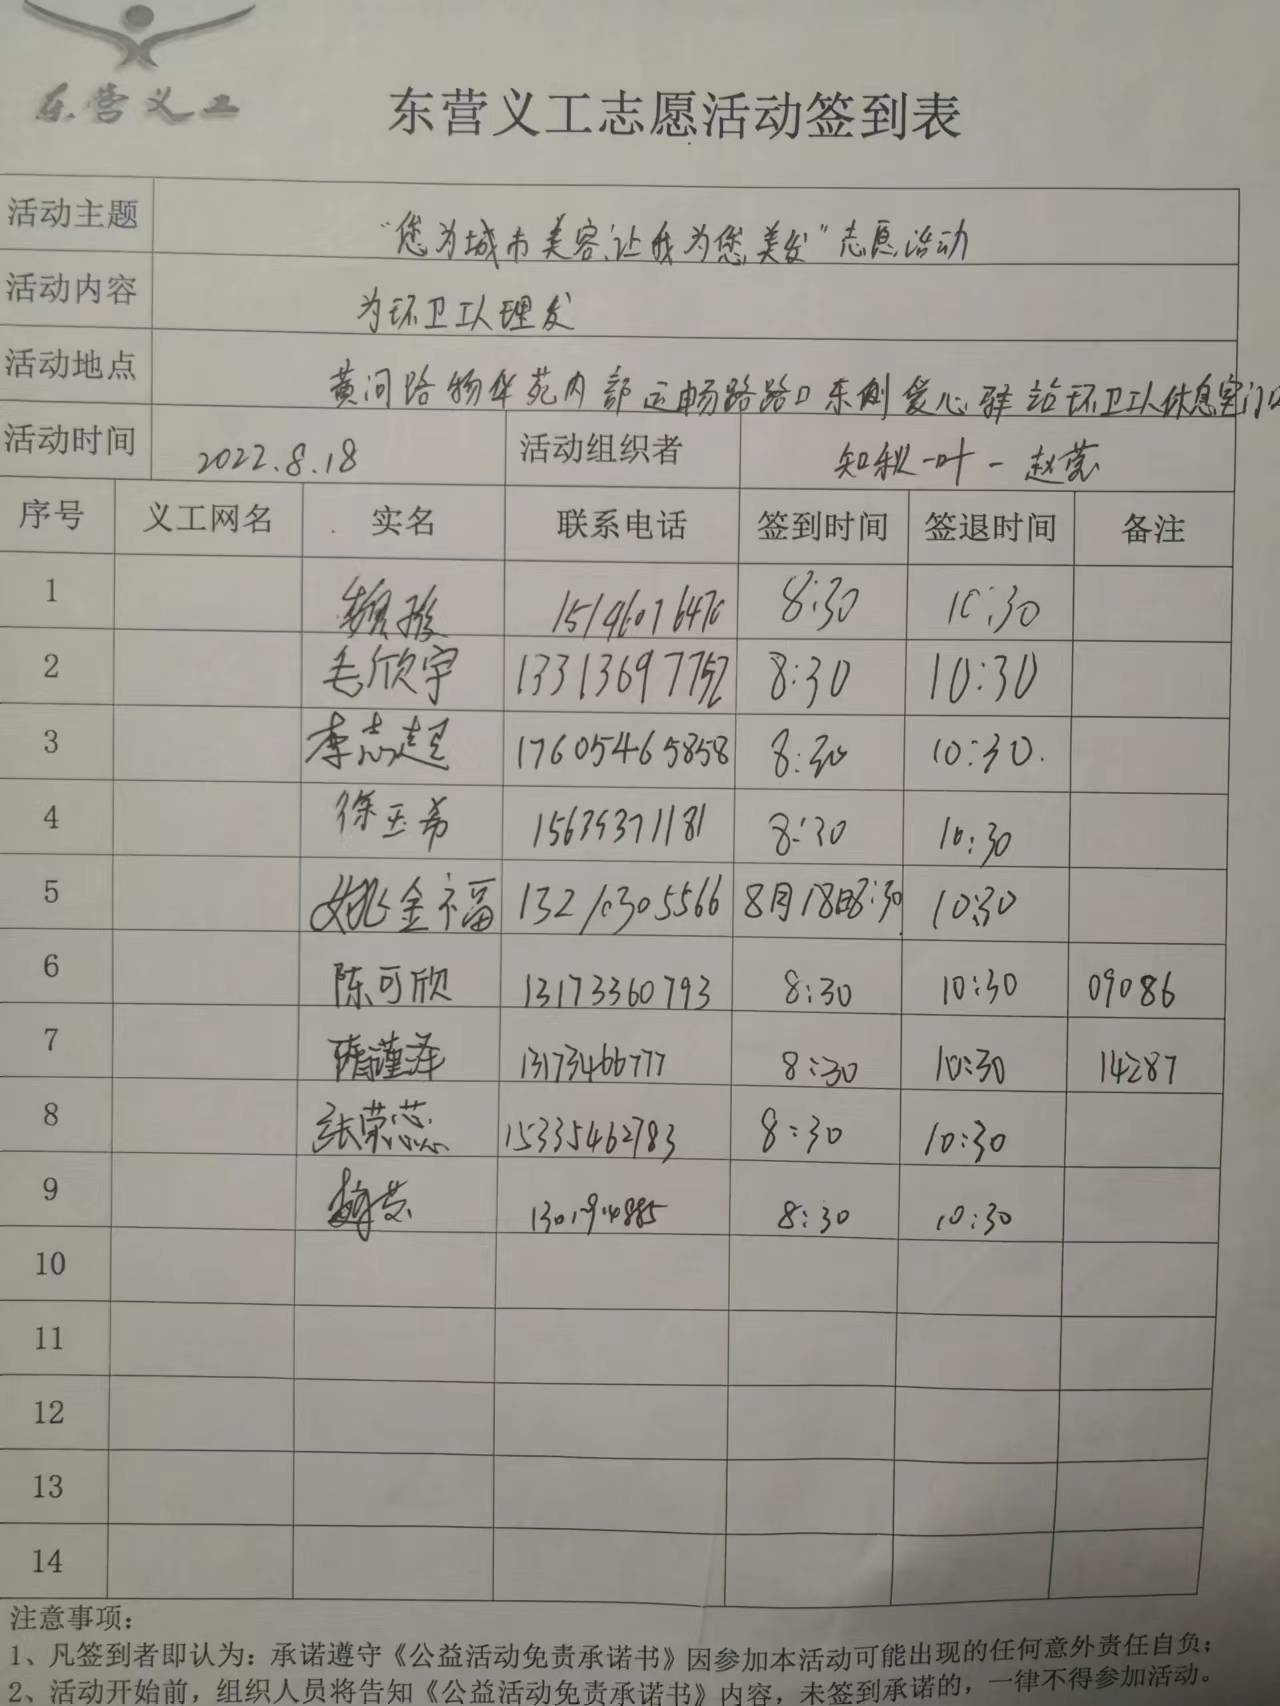 东营义工
东营义工志愿活动签到表
活动主题 “您为城市美容,让我为您美发”志愿活动
活动内容 为环卫工人理发
活动地点 黄河路物华苑内部运畅路路口东侧爱心驿站环卫工人休息室门口
活动时间 2022.8.18 活动组织者 知秋一叶－赵蕓
序号 义工网名 实名 联系电话 签到时间 签退时间 备注
1 8:30 10:30
2 毛欣宇 13313697752 8:30 10:30
3 李志超 17605465858 8:30 10:30.
4 徐玉希 15635371181 8:30 10:30
5 姚金福 13210305566 8月18日8:30 10:30
6 陈可欣 13173360793 8:30 10:30 09086
7 隋谨泽 13173466777 8:30 10:30 14287
8 张荣蕊 15335462783 8:30 10:30
9 8:30 10:30
10
11
12
13
14
注意事项:
1、凡签到者即认为：承诺遵守《公益活动免责承诺书》因参加本活动可能出现的任何意外责任自负；
2、活动开始前，组织人员将告知《公益活动免责承诺书》内容，未签到承诺的，一律不得参加活动。